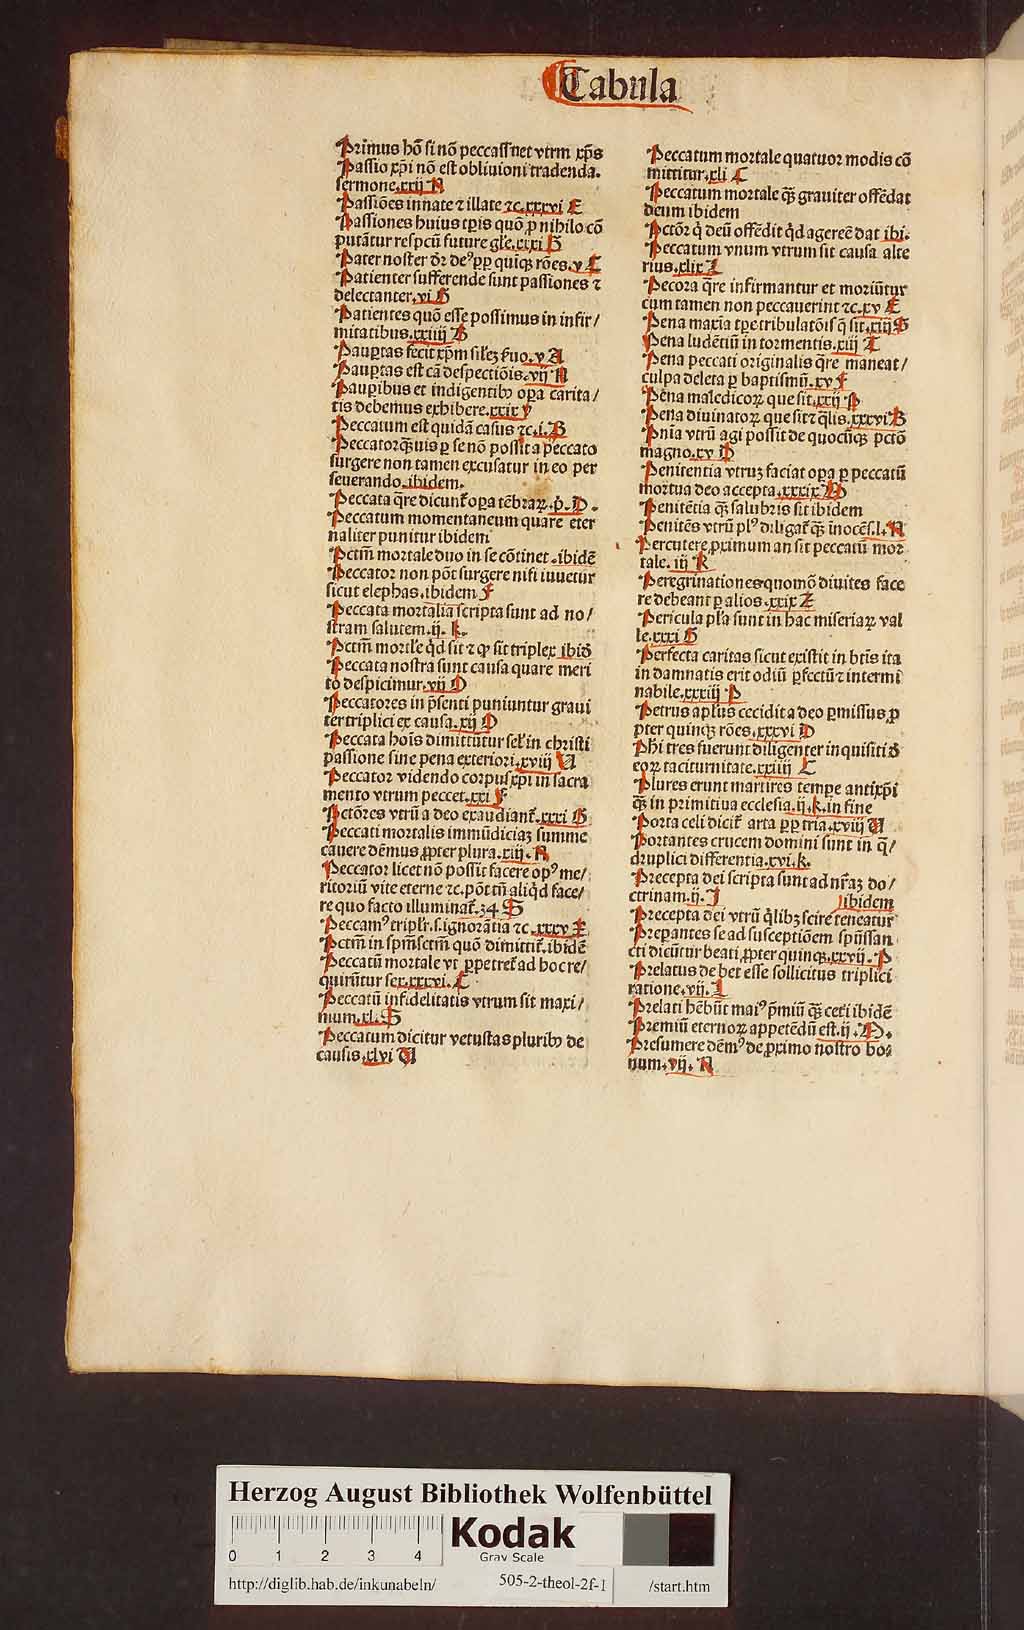 Tabula
Primus hō si nō peccasset vtrm xp̄s
Passio xp̄i nō est obliuioni tradenda.
sermone.xxij N
Passiōes innate ⁊ illate ⁊c.xxxvi E
Passiones huius tp̄is quō p̱ nihilo cō
putātur respcū future gl̄e.xxxi H
Pater noster dr̄ deꝰ ꝓp quiqꝫ rōes.v C
Patienter sufferende sunt passiones ⁊
delectanter.vi H
Patientes quō esse possimus in infir/
mitatibus.xxiiij B
Paup̱tas fecit xp̄m sil̄eꝫ ẜuo.v A
Paup̱tas est cā despectiōis.vij N
Paup̱ibus et indigentibꝰ op̱a carita/
tis debemus exhibere.xxix V
Peccatum est quidā casus ⁊c.i.B
Peccator qȝuis p̱ se nō possit a peccato
surgere non tamen excusatur in eo per
seuerando.ibidem.
Peccata q̄re dicunt᷒ op̱a tēbraꝝ.p̄.D.
Peccatum momentaneum quare eter
naliter punitur ibidem
Pctm̄ mortale duo in se cōtinet.ibidē
Peccator non pōt surgere nisi iuuetur
sicut elephas.ibidem F
Peccata mortalia scripta sunt ad no/
stram salutem.ij. k.
Pctm̄ mortl̄e qd̄ sit ⁊ ꝙ sit triplex ibid̄
Peccata nostra sunt causa quare meri
to despicimur.vij O
Peccatores in p̄senti puniuntur graui
ter triplici ex causa.xij D
Peccata hoīs dimittūtur sel̄ in christi
passione sine pena exteriori.xviij U
Peccator videndo corpus xp̄i in sacra
mento vtrum peccet.xxi F
Pctōres vtrū a deo exaudiant᷒.xxxi G
Peccati mortalis immūdiciaꝫ summe
cauere dēmus ꝓpter plura.xiij.N
Peccator licet nō possit facere opꝰ me/
ritoriū vite eterne ⁊c.pōt tn̄ aliqd̄ face/
re quo facto illuminat᷒.34.S
Peccamꝰ triplr̄.s.ignorātia ⁊c.xxxv P
Pctm̄ in spm̄sctm̄ quō dimittit᷒.ibidē
Peccatū mortale vt ꝑpetret᷒ ad hoc re/
quirūtur sex.xxxvi.C
Peccatū infidelitatis vtrum sit maxi/
mum.xl.S
Peccatum dicitur vetustas pluribꝰ de
causis.xlvi U
Peccatum mortale quatuor modis cō
mittitur.xli C
Peccatum mortale qȝ grauiter offēdat
deum ibidem
Pctōr q̄ deū offēdit qd̄ agere ēe dat ibi.
Peccatum vnum vtrum sit causa alte
rius.xlix I
Pecora q̄re infirmantur et moriūtur
cum tamen non peccauerint ⁊c.xv E
Pena maxīa tp̱e tribulatōis q̄ sit.xiij S
Pena ludētiū in tormentis.xiij T
Pena peccati originalis q̄re maneat/
culpa deleta p̱ baptismū.xv f
Pena maledicoꝝ que sit.xxij P
Pena diuinatoꝝ que sit ⁊ q̄lis.xxxvi B
Pnīa vtrū agi possit de quocūqꝫ pctō
magno.xv D
Penitentia vtruꝫ faciat op̱a p̱ peccatū
mortua deo accepta.xxxix M
Penitētia qȝ salubris sit ibidem
Penitēs vtrū plꝰ diligat᷒ qȝ inocēs.l.N
Percutere ꝓximum an sit peccatū mor
tale. iij K
Peregrinationes quomō diuites face
re debeant p̱ alios.xxix Z
Pericula pl̄a sunt in hac miseriaꝝ val
le.xxxi G
Perfecta caritas sicut existit in btīs ita
in damnatis erit odiū p̱fectū ⁊ intermi
nabile.xxxiij P
Petrus aplūs cecidit a deo p̱missus ꝓ
pter quinqꝫ rōes.xxxvi D
Phī tres fuerunt diligenter inquisiti d̄
eoꝝ taciturnitate.xxiiij C
Plures erunt martires tempe antixp̄i
qȝ in primitiua ecclesia.ij.k.in fine
Porta celi dicit᷒ arta ꝓp tria.xviij U
Portantes crucem domini sunt in q̄/
druplici differentia.xvi.k.
Precepta dei scripta sunt ad nr̄aꝫ do/
ctrinam.ij.I
ibidem
Precepta dei vtrū q̄libꝫ scire teneatur
Prep̱antes se ad susceptiōem spūssan
cti dicūtur beati ꝓpter quinqꝫ.xxvij.P
Prelatus debet esse sollicitus triplici
ratione.vij.L
Prelati hēbūt maiꝰ p̄miū qȝ ceti ibidē
Premiū eternoꝝ appetēdū est.ij.D.
Presumere dēmꝰ de ꝓximo nostro bo
num.vij.N
Herzog August Bibliothek Wolfenbüttel
0 1 2 3 4
Kodak
Gray Scale
http://diglib.hab.de/inkunabeln/ 505-2-theol-2f-1 /start.htm